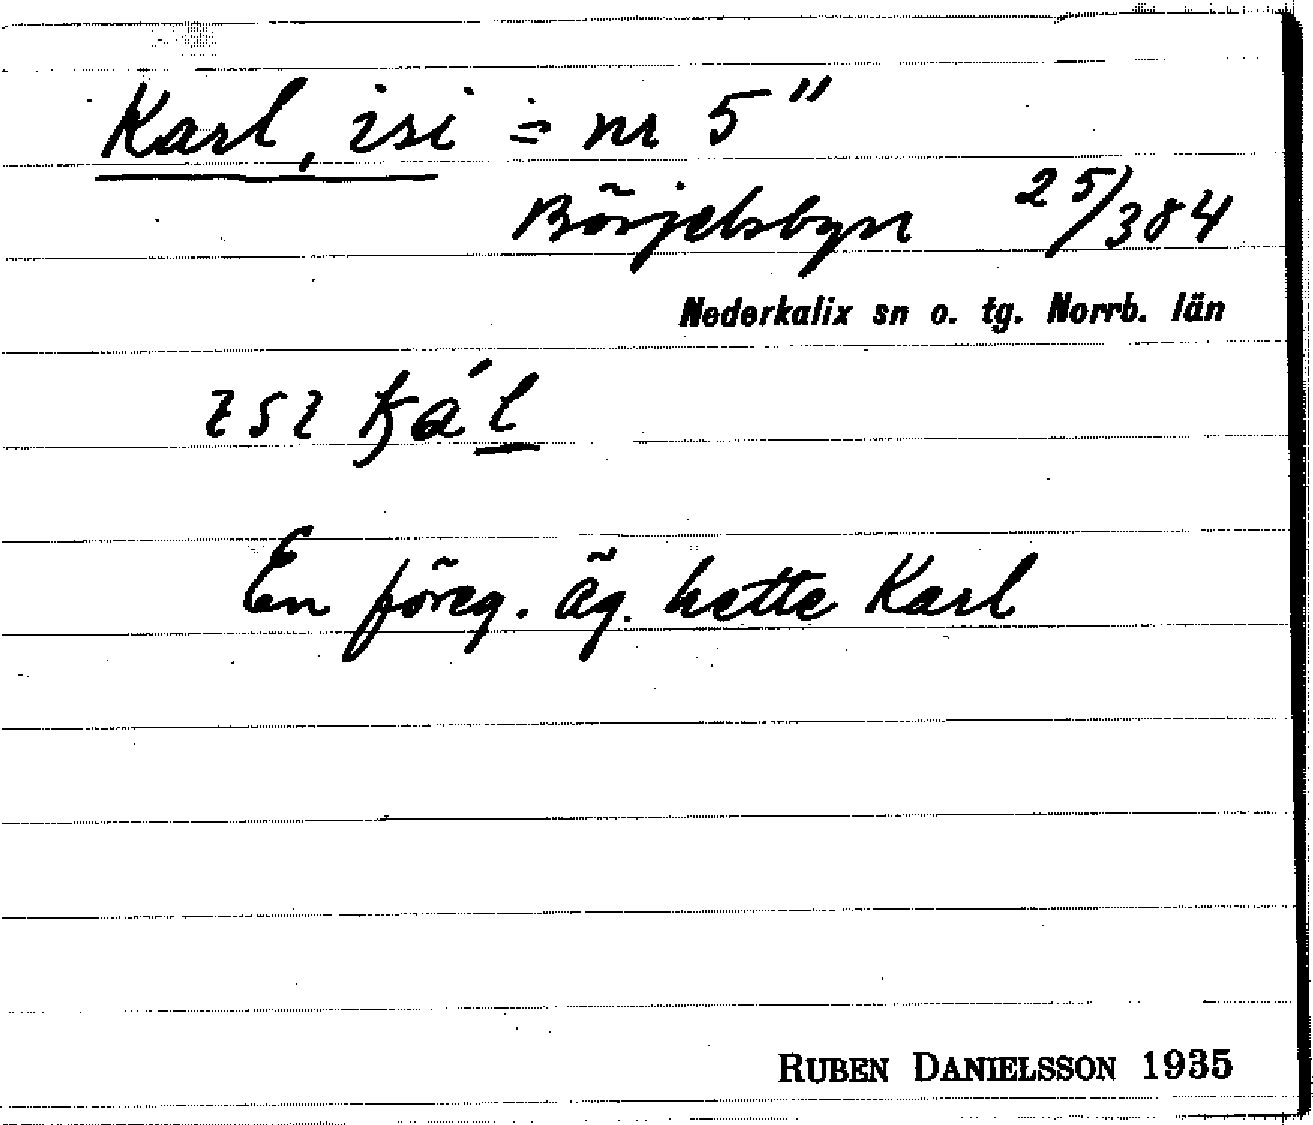 Karl, isi = nr 5"
Börjelsbyn 25/384
Nederkalix sn o. tg. Norrb. län
En föreg. äg. hette Karl
RUBEN DANIELSSON 1935